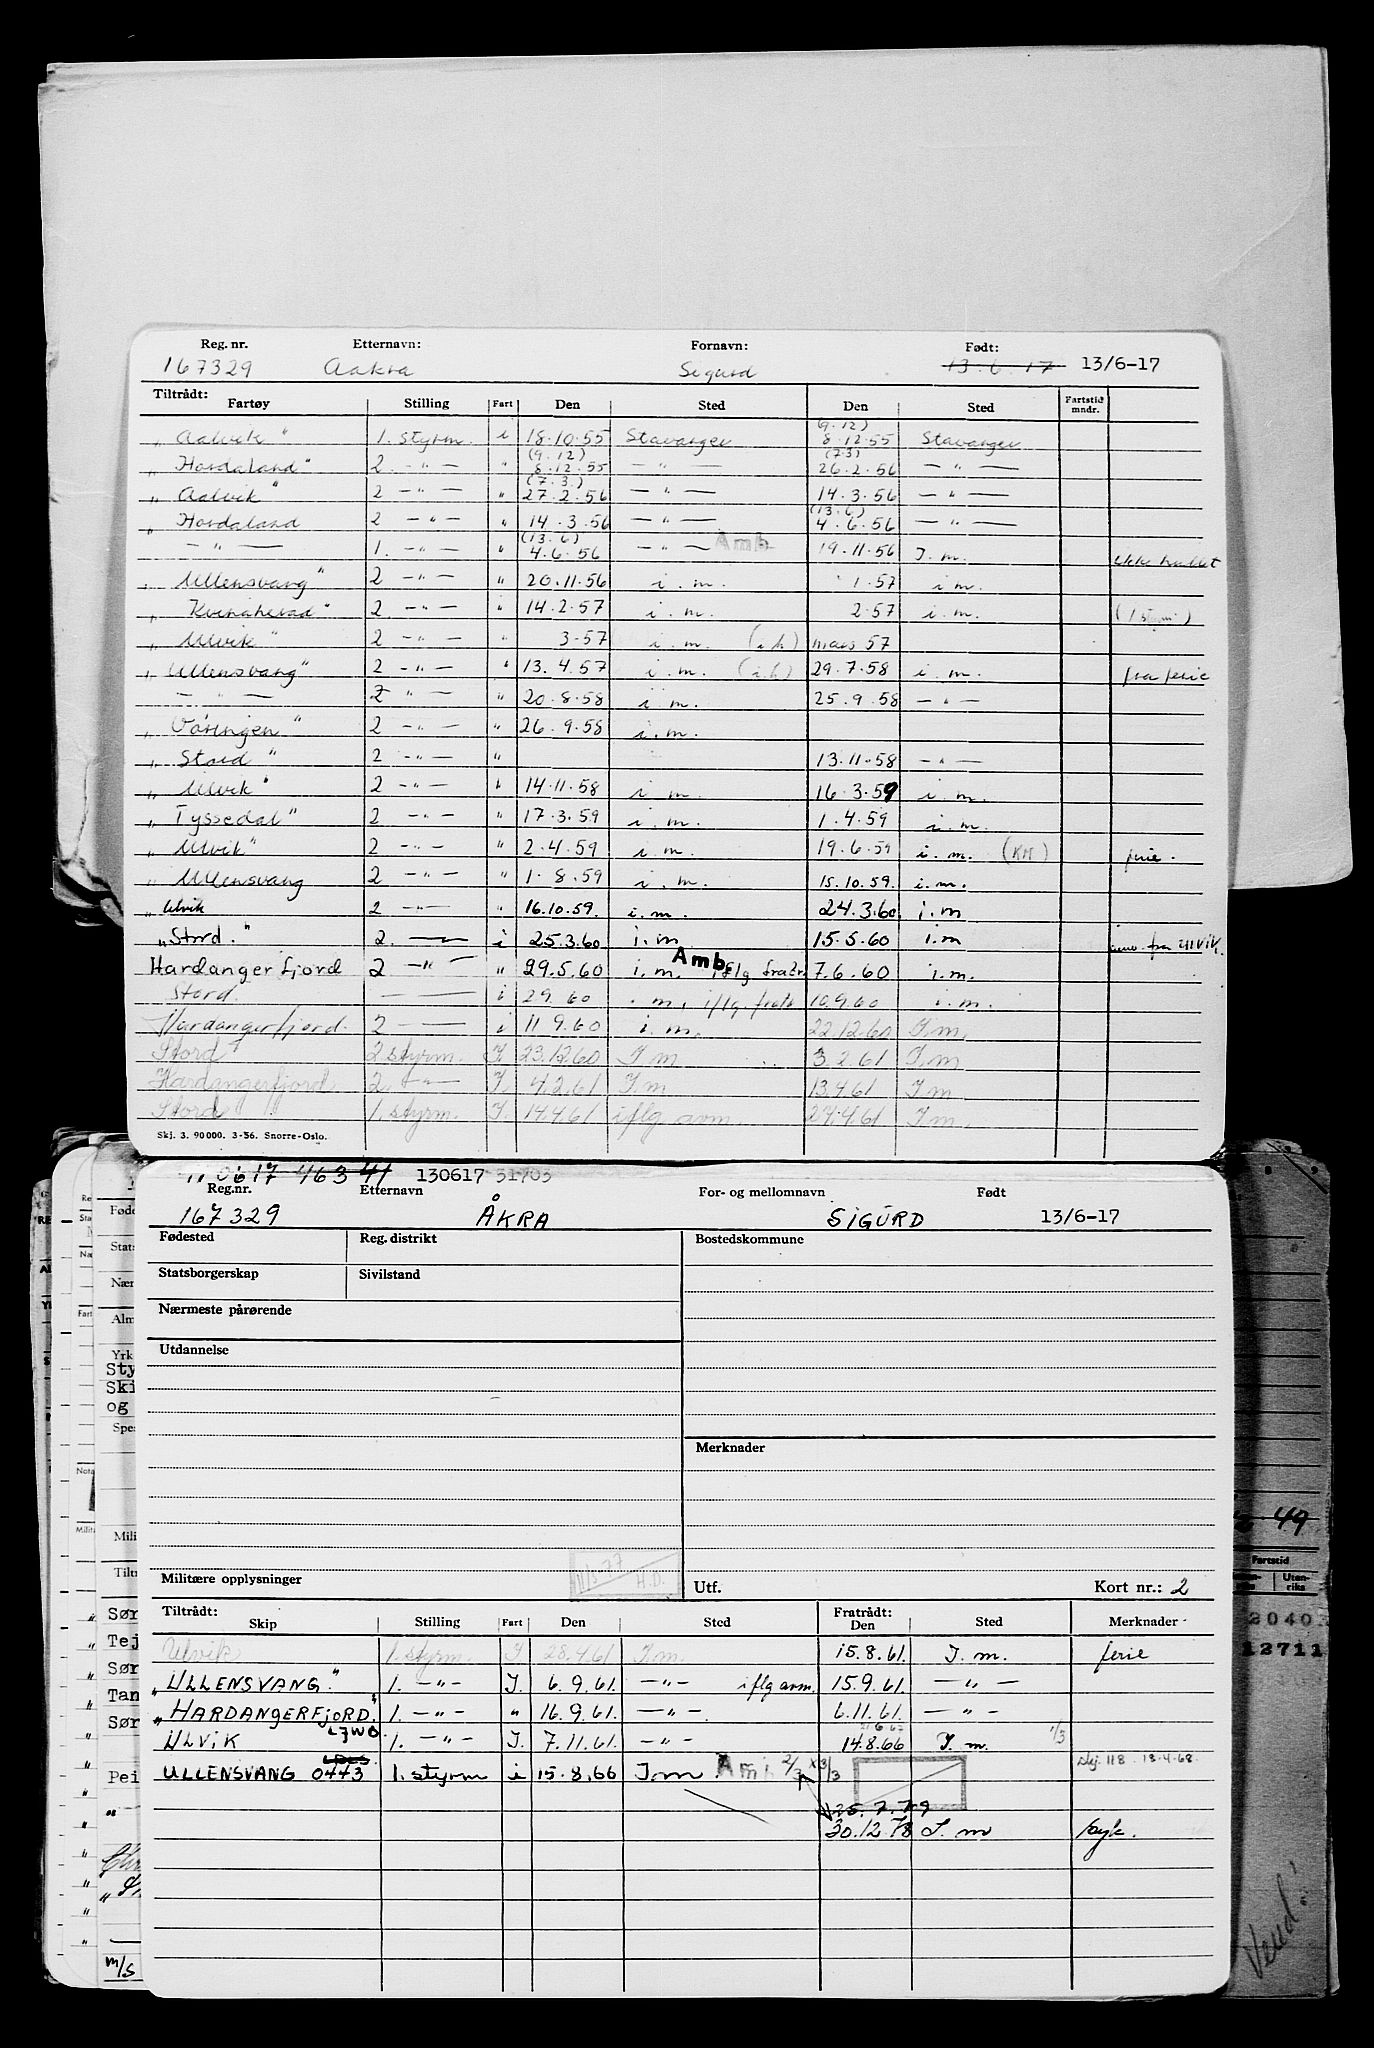 Reg. nr. Etternavn: Fornavn: Født:
167329 Aakra Sigurd 13.6.17 13/6-17
Tiltrådt:
Fartøy Stilling Fart Den Sted Den Sted Fartstid mndr.
(9.12)
„ Aalvik " 1. styrm. i 18.10.55 Stavanger 8.12.55 Stavanger
(9.12) (7.3)
„ Hordaland " 2. -"- " 8.12.55 -"- 26.2.56 -"-
(7.3.)
„ Aalvik " 2 -"- " 27.2.56 -"- 14.3.56 -"-
(13.6)
„ Hordaland 2 -"- " 14.3.56 -"- 4.6.56 -"-
(13.6)
-"- 1. -"- " 4.6.56 -"- Amb 19.11.56 I.m.
„ Ullensvang " 2 -"- " 20.11.56 i.m. 1.57 i.m.
„ Kvinnherad " 2 -"- " 14.2.57 i.m. 2.57 i.m.
„ Ulvik " 2 -"- " 3-57 i.m. mars 57
„ Ullensvang " 2 -"- " 13.4.57 i.m. 29.7.58 i.m. fra ferie
-"- 2 -"- " 20.8.58 i.m. 25.9.58 -"-
„ Vöringen " 2 -"- " 26.9.58 i.m.
„ Stord " 2 -"- " 13.11.58 -"-
„ Ulvik " 2 -"- " 14.11.58 i.m. 16.3.59 i.m.
„ Tyssedal " 2 -"- " 17.3.59 i.m. 1.4.59 i.m.
„ Ulvik " 2 -"- " 2.4.59 i.m. 19.6.59 i.m. (KM) ferie.
„ Ullensvang 2 -"- " 1.8.59 i.m. 15.10.59. i.m.
„ Ulvik 2 -"- " 16.10.59. i.m. 24.3.60 i.m
„ Stord. " 2. -"- i 25.3.60 i.m 15.5.60 i.m fra Ulvik.
Hardangerfjord 2 -"- " 29.5.60 i.m. Amb. iflg fratr. 7.6.60 i.m.
Stord. — i 29. 60 i.m. iflg. fratr 10.9.60 i.m.
Hardangerfjord. 2 — i 11 9.60 i.m. 22.12.60 I.m.
Stord 2 styrm. I. 23.12.60 I.m 3.2.61 I.m
Hardangerfjord 2. -"- I. 4.2.61 I.m 13.4.61 I.m
Stord 1. styrm. I. 14.4.61 iflg avm. 27.4.61 I.m.
Skj. 3. 90000. 3-56. Snorre-Oslo.
110617 46341 130617 31703
Reg.nr. Etternavn For- og mellomnavn Født
167329 ÅKRA SIGURD 13/6-17
Fødested Reg. distrikt Bostedskommune
Statsborgerskap Sivilstand
Nærmeste pårørende
Utdannelse
Merknader
Militære opplysninger H.D. Utf. Kort nr.: 2
Tiltrådt: Fratrådt:
Skip Stilling Fart Den Sted Den Sted Merknader
Ulvik 1. styrm. I 28.4.61 I.m. 15.8.61. I.m. ferie
„ ULLENSVANG. " 1. -"- I. 6.9.61. -"- iflg avm. 15.9.61. -"-
„ HARDANGERFJORD. " 1. -"- " 16.9.61. -"- 6.11.61. -"-
LJWO
ULVIK 1. -"- I. 7.11.61. -"- 14.8.66 I.m. 1/3
ULLENSVANG 0473 1. styrm i 15.8.66 I.m Amb 2/3 x3/3 Skj. 118 13-4-68.
25.7.79
30.12.78 I.m syk.
Føde
Stats
Nær
Alm
Yrk
Sty
Ski
og
Spes
Nota
Mili
Tiltr
Sør
Tej
Sør
Tan
Sør
Pei
m/s
49
Fartstid
Utenriks
2040
12711
Vend!